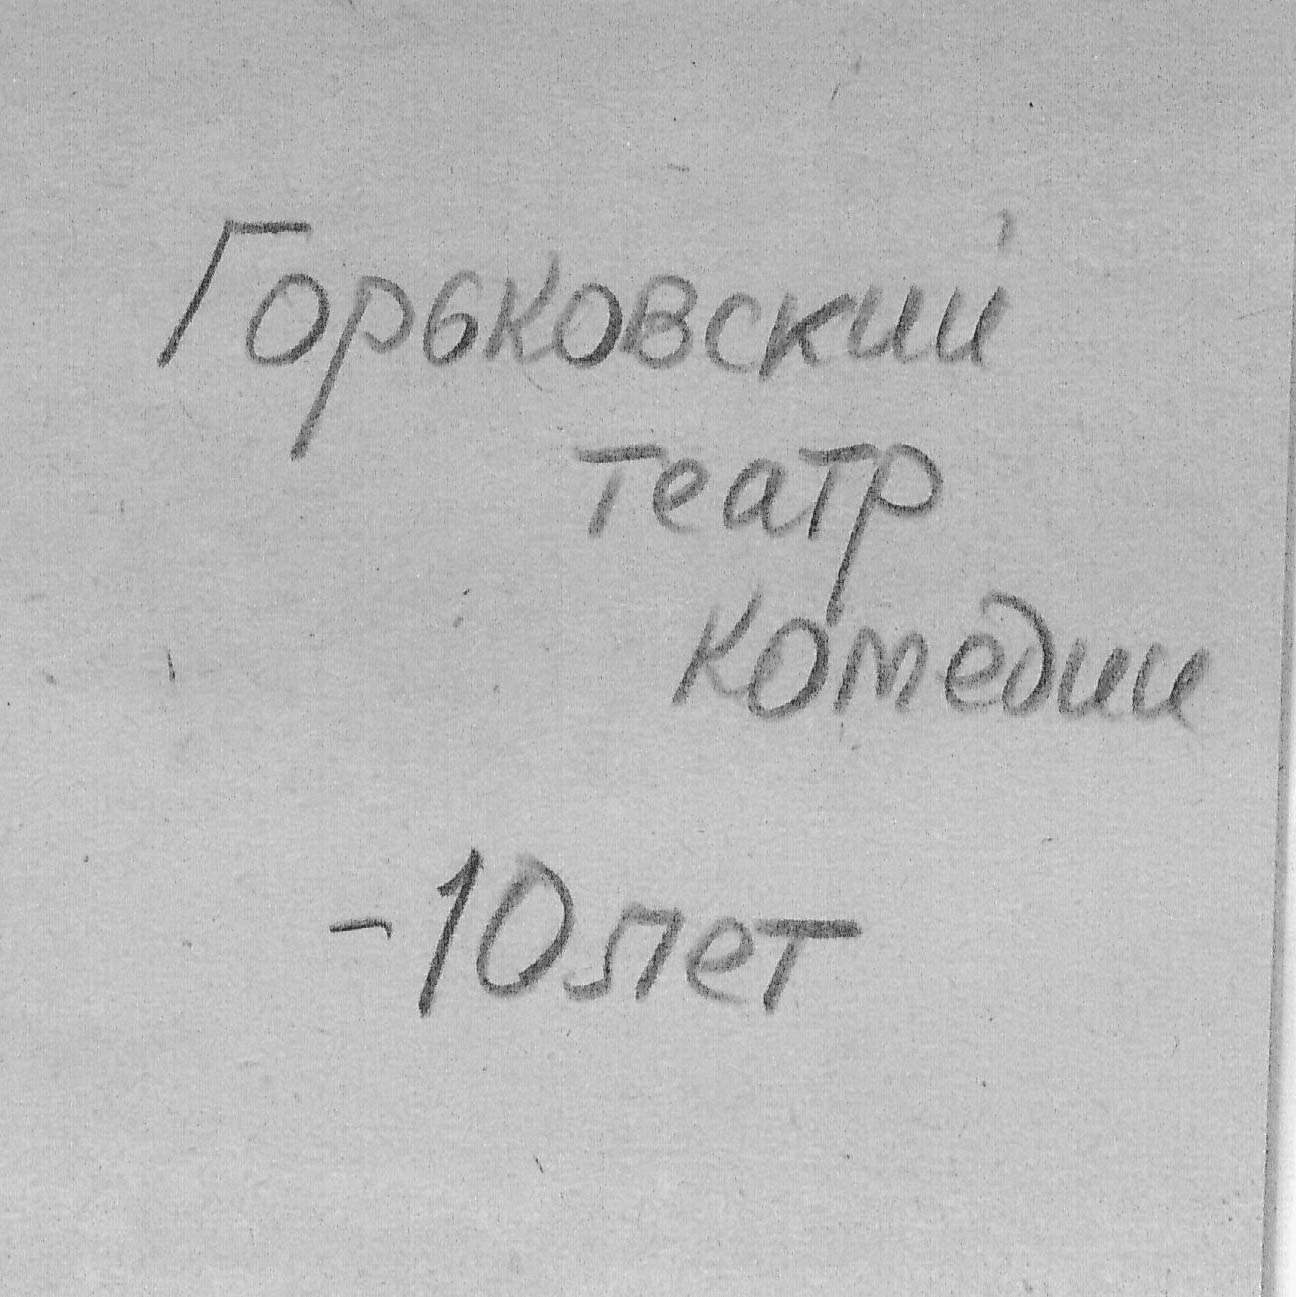 Горьковский
театр
комедии
-10 лет